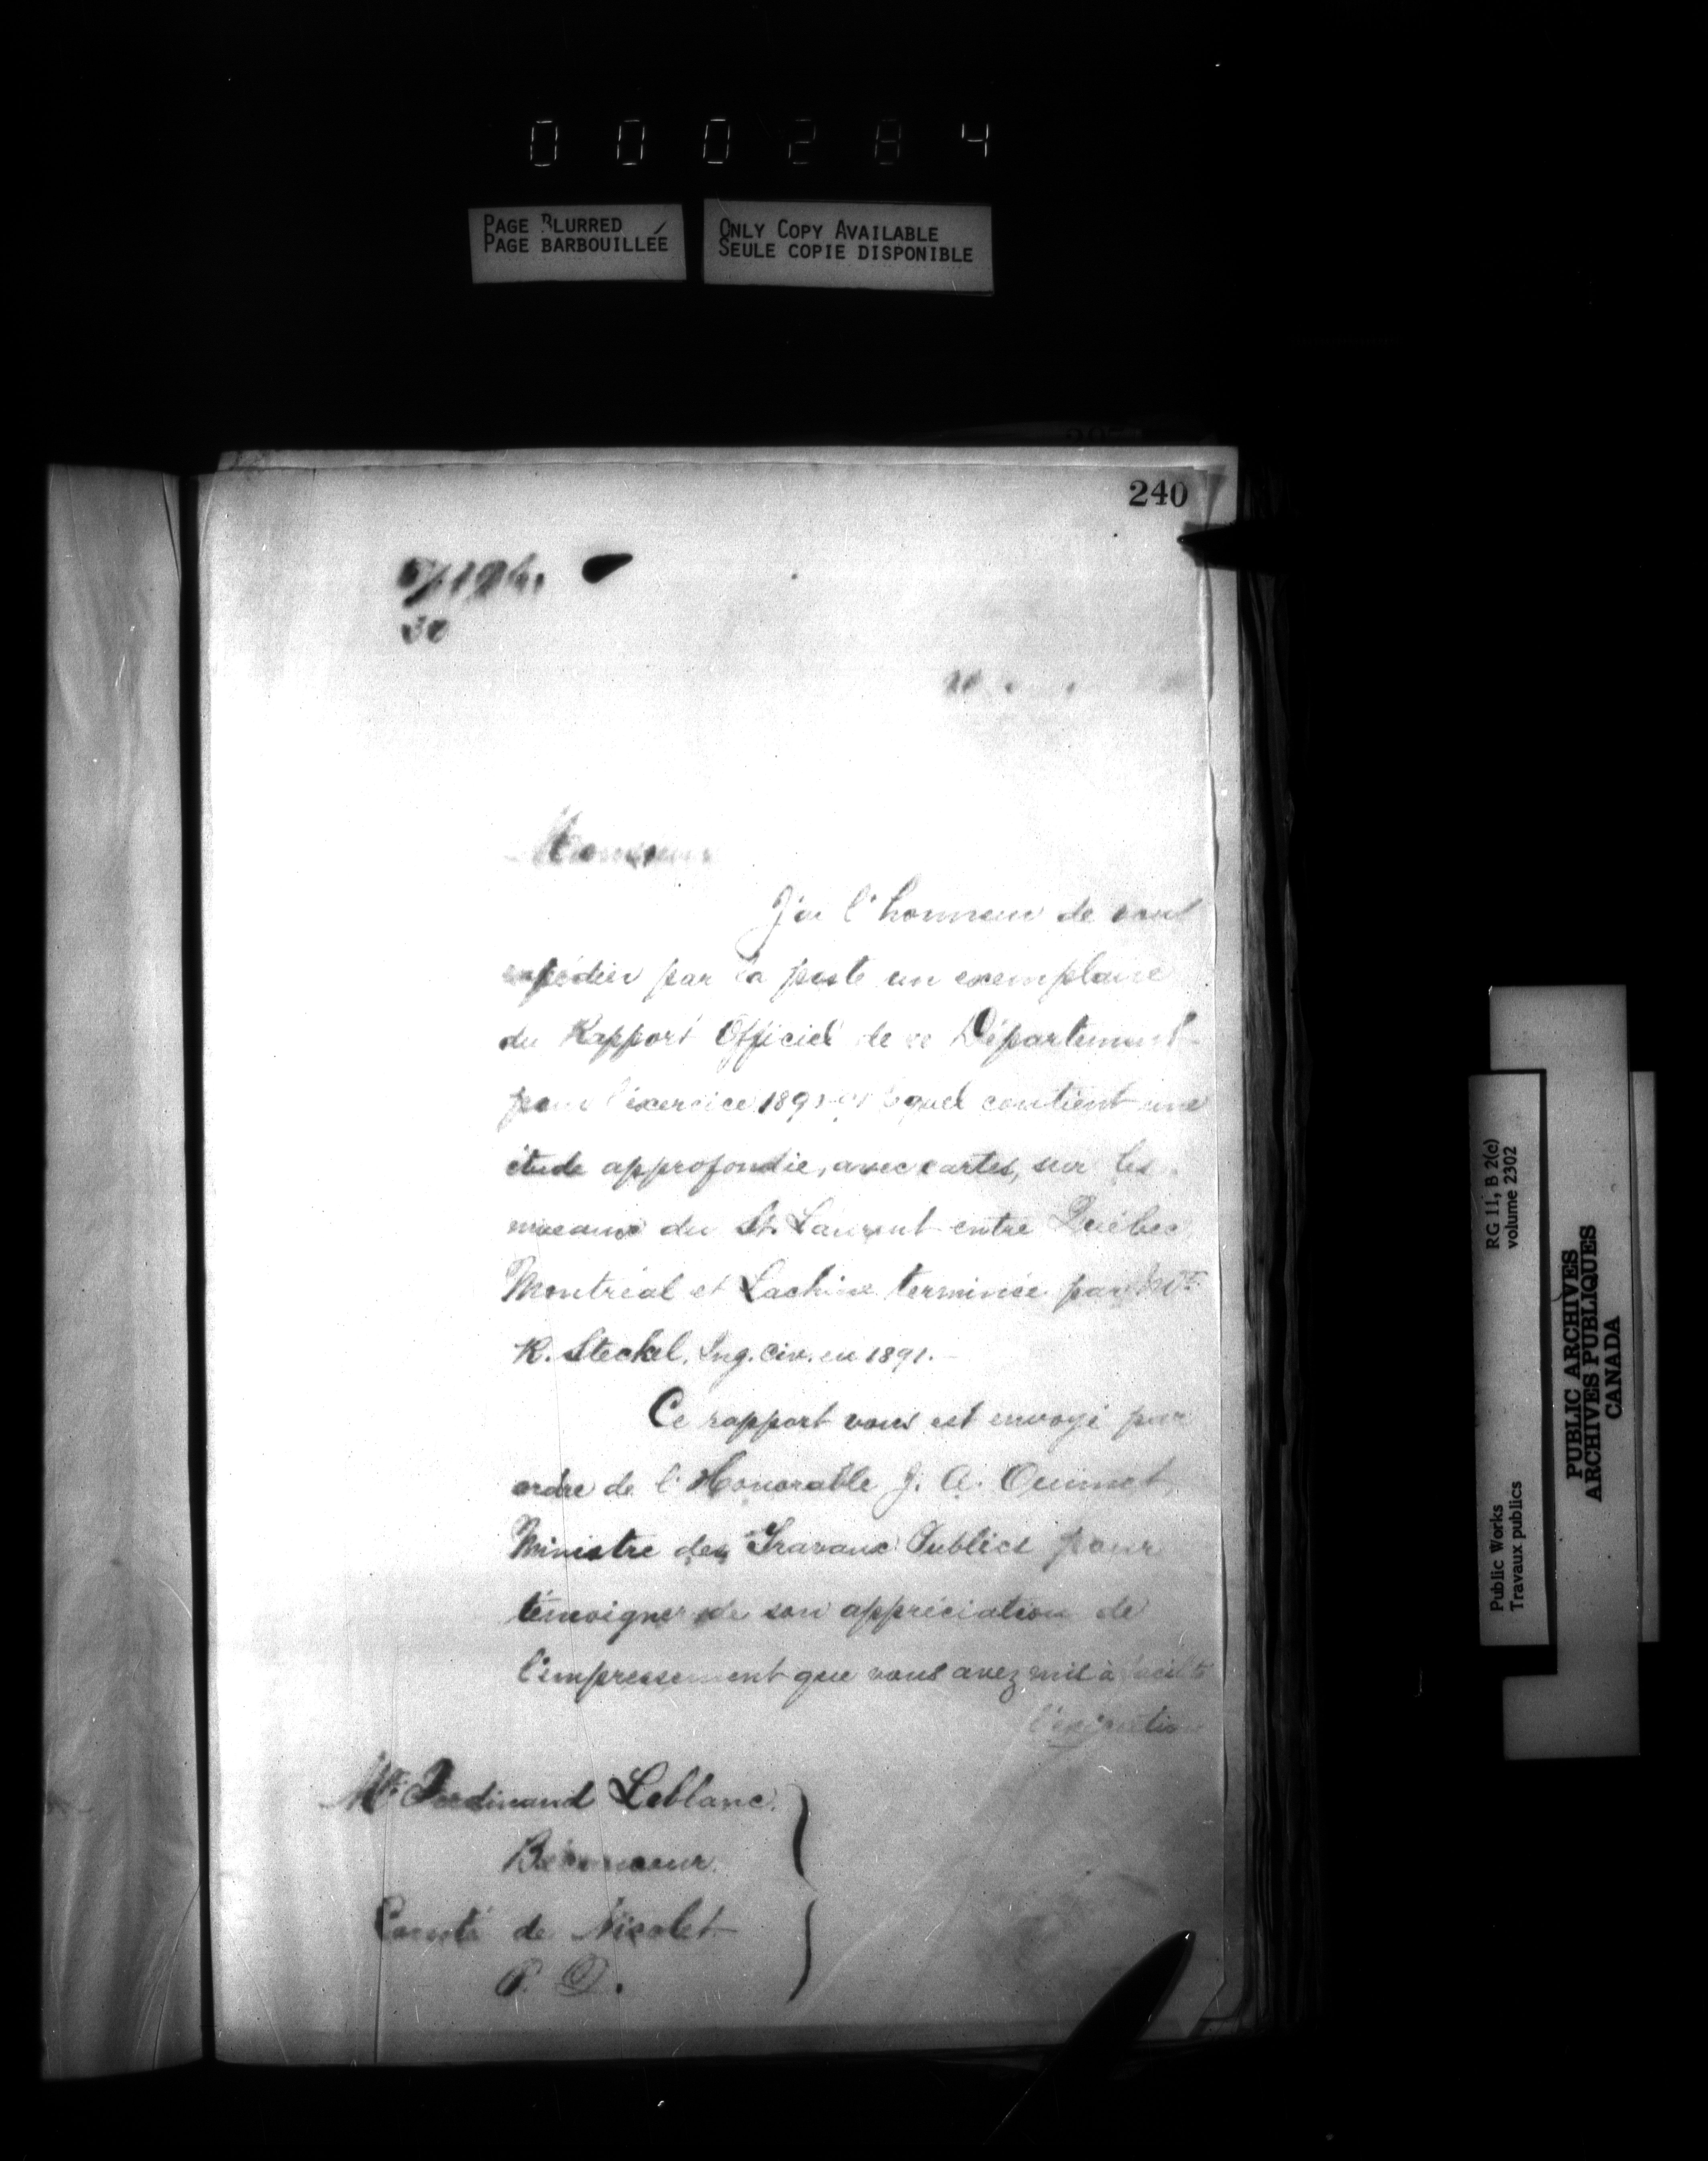 000284
PAGE BLURRED
PAGE BARBOUILLÉE
ONLY COPY AVAILABLE
SEULE COPIE DISPONIBLE
240
30
Monsieur
J'ai l'honneur de vous
expédier par la poste un exemplaire
du Rapport Officiel de ce Département
pour l'exercice lequel contient une
étude approfondie, avec cartes, sur les
niveaux du St. Laurent entre Québec,
Montréal et Lachine terminée par Mr.
R. Steckel, Ing. Civ. en 1891.
Ce rapport vous est envoyé par
ordre de l'Honorable J. A. Ouimet,
Ministre des Travaux Publics pour
témoigner de son appréciation de
l'empressement que vous avez mis à
l'exécution
Mr. Ferdinand Leblanc.
Bécancour.
Comté de Nicolet
P. Q.
RG 11, B 2(c)
volume 2302
Public Works
Travaux publics
PUBLIC ARCHIVES
ARCHIVES PUBLIQUES
CANADA